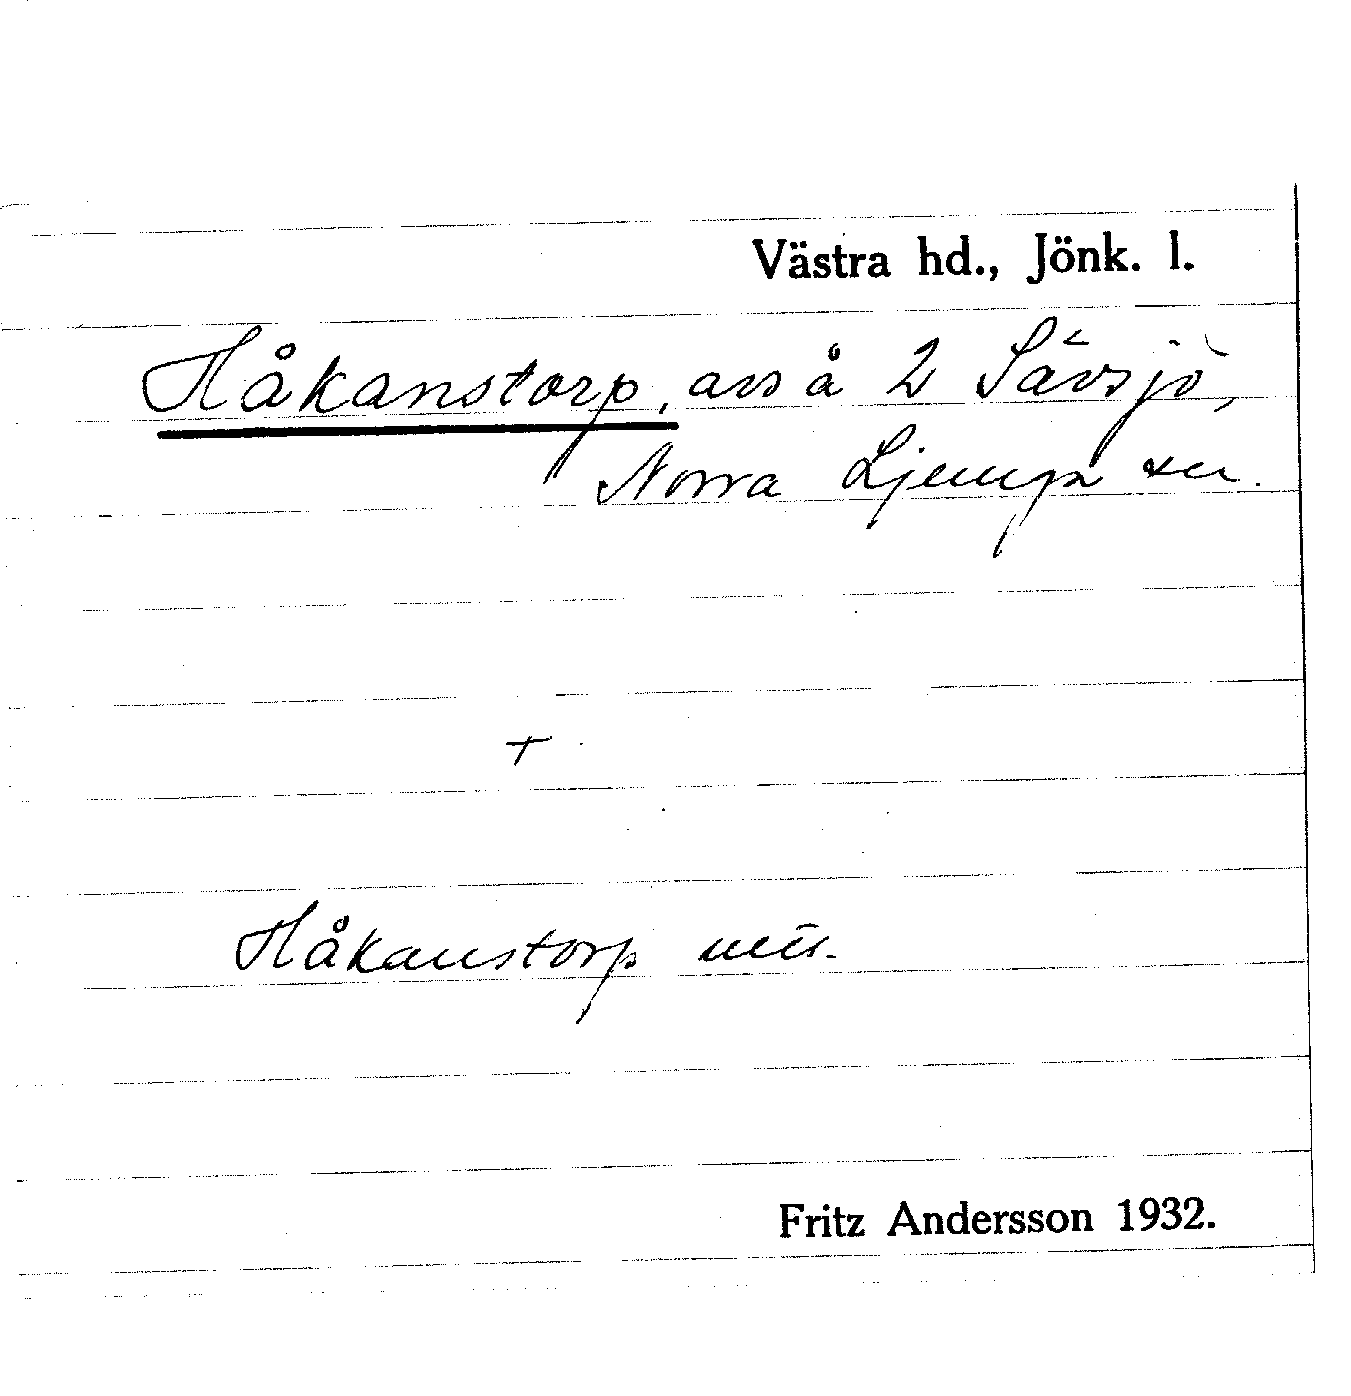 Västra hd., Jönk. l.
Håkanstorp, avs å 2 Sävsjö,
Norra Ljunga sn.
+
Håkanstorp
Fritz Andersson 1932.